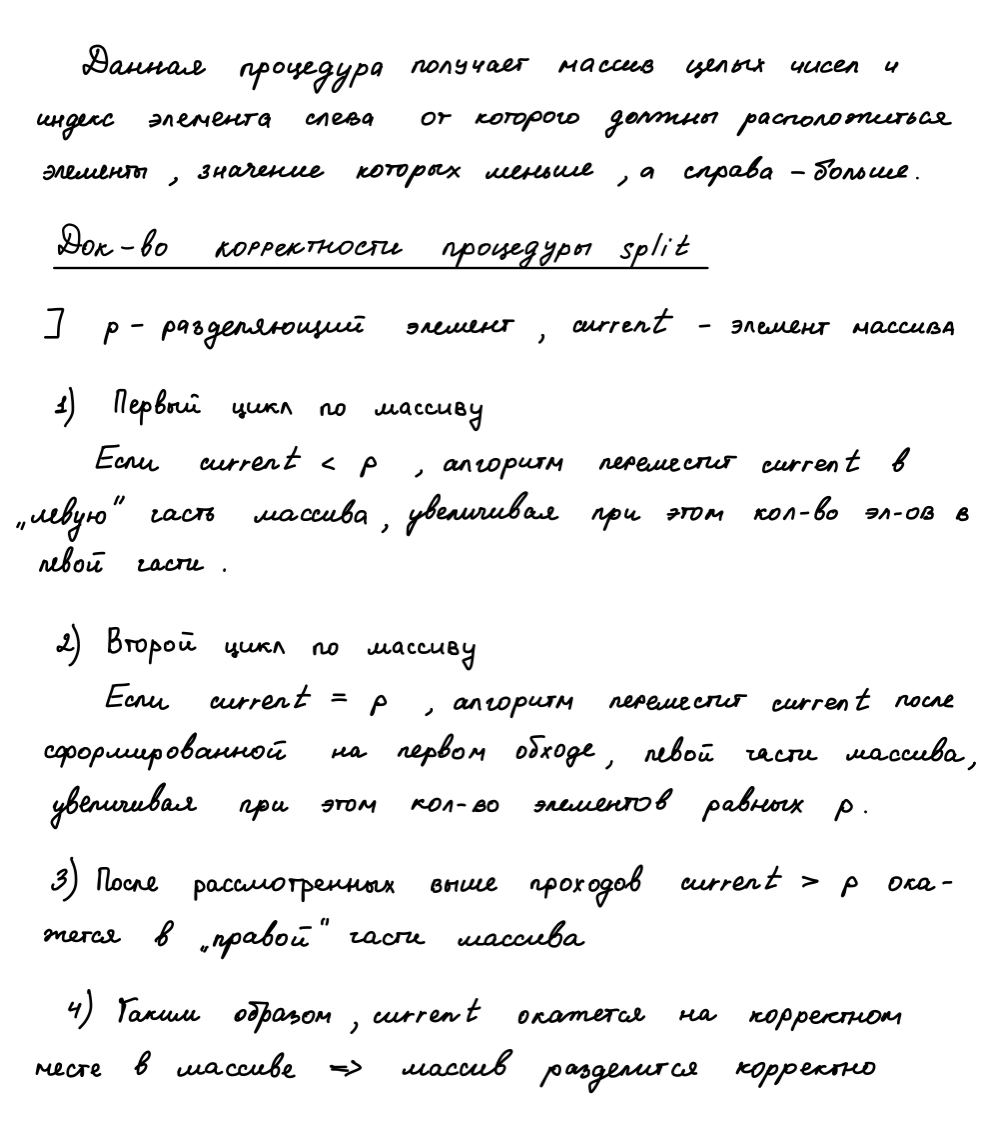 Данная процедура получает массив целых чисел и
индекс элемента слева от которого должны расположиться
элементы , значение которых меньше , а справа – больше.
Док-во корректности процедуры split
] p – разделяющий элемент , current – элемент массива
1) Первый цикл по массиву
Если current < p , алгоритм переместит current в
„левую" часть массива, увеличивая при этом кол-во эл-ов в
левой части .
2) Второй цикл по массиву
Если current = p , алгоритм переместит current после
сформированной на первом обходе, левой части массива,
увеличивая при этом кол-во элементов равных p .
3) После рассмотренных выше проходов current > p ока-
жется в „правой" части массива
4) Таким образом , current окажется на корректном
месте в массиве => массив разделится корректно